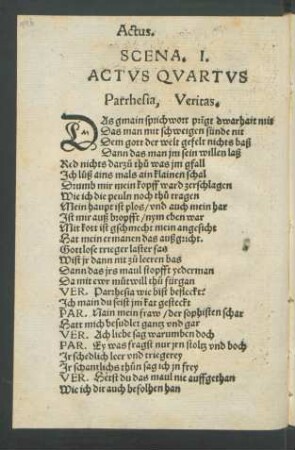 Actus.
SCENA. I.
ACTVS QVARTVS
Parrhesia, Veritas.
DAs gmain sprichwort prigt dwarhait nit
Das man mit schweigen sünde nit
Dem gott der welt gefelt nichts baß
Dann das man im sein willen laß
Red nichts darzů thů was im gfall
Ich lüß ains mals ain klainen schal
Drumb mir mein kopff ward zerschlagen
Wie ich die peuln noch thů tragen
Mein haupt ist plos / vnd auch mein har
Ist mir auß bropfft / nym eben war
Mit kott ist gschmecht mein angesicht
Hat mein ermanen das außgricht.
Gottlose trieger laster sas
Wist jr dann nit zů leeren bas
Dann das jrs maul stopfft yederman
Da mit ewr můtwill thů fürgan
VER. Parrhesia wie bist besteckt?
Ich main du seist im kat gesteckt
PAR. Nain mein fraw / der sophisten schar
Hatt mich besudlet gantz vnd gar
VER. Ach liebe sag warumben doch
PAR. Ey was fragst nur jrn stoltz vnd boch
Ir schedlich leer vnd triegerey
Ir schantlichs thůn sag ich jn frey
VER. Hetst du das maul nie auffgethan
Wie ich dir auch befolhen han